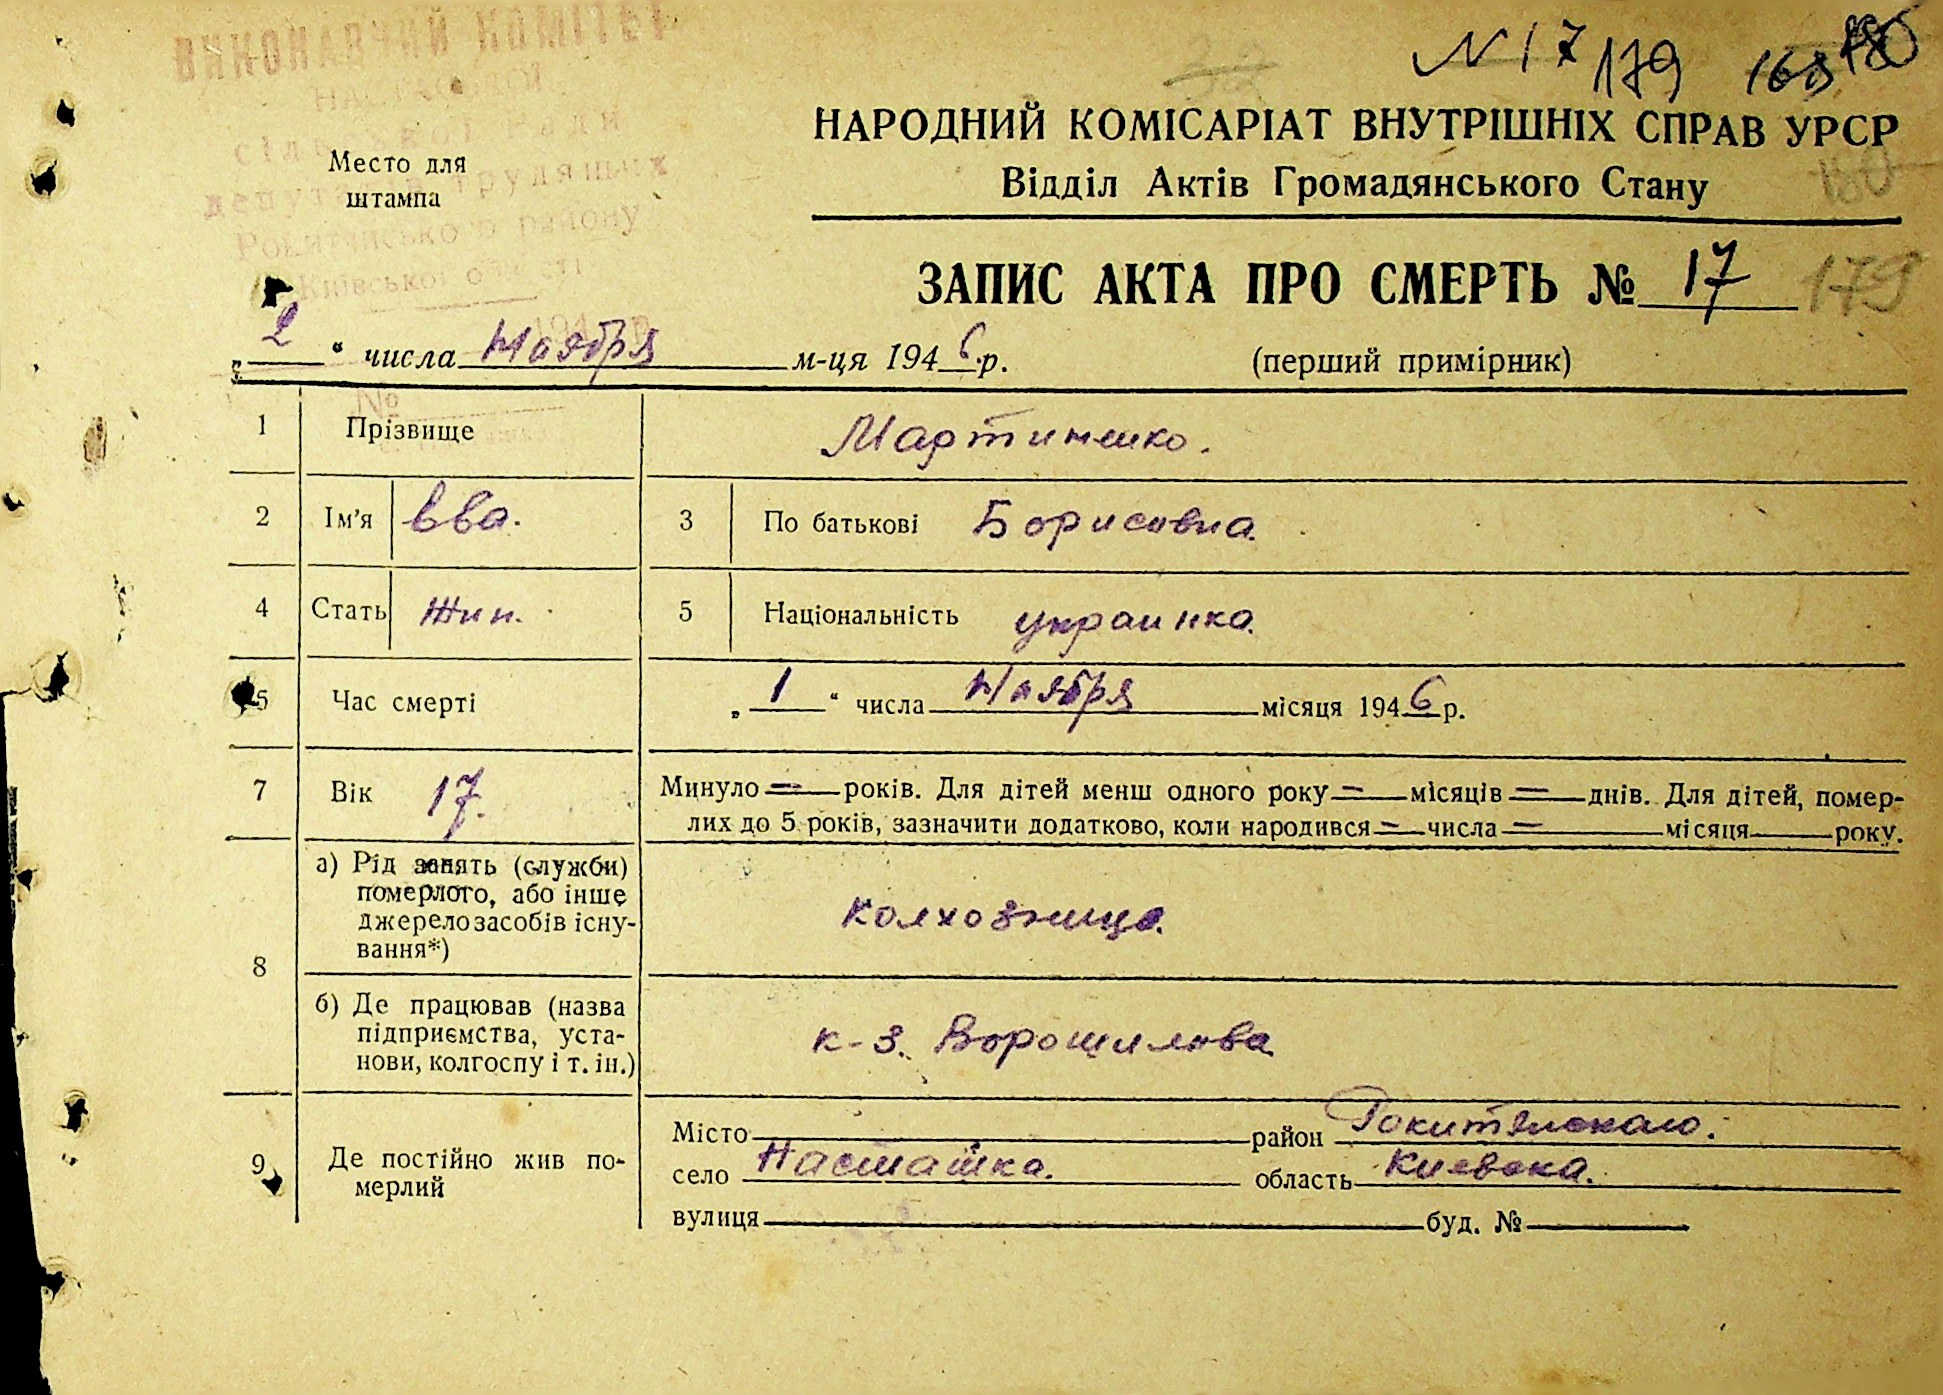 ВИКОНАВЧИЙ КОМІТЕТ
сільської Ради
депутатів трудящих
Рокитнянського району
Київської області
№
Место для
штампа
N 17 179
НАРОДНИЙ КОМІСАРІАТ ВНУТРІШНІХ СПРАВ УРСР
Відділ Актів Громадянського Стану
180
ЗАПИС АКТА ПРО СМЕРТЬ № 17 179
„ 2 “ числа Ноября м-ця 1946 р. (перший примірник)
1 Прізвище Мартиненко.
2 Ім'я Ева. 3 По батькові Борисовна.
4 Стать жин. 5 Національність украинка.
6 Час смерті „ 1 “ числа Ноября місяця 1946 р.
7 Вік 17. Минуло = років. Для дітей менш одного року = місяців = днів. Для дітей, помер-
лих до 5 років, зазначити додатково, коли народився = числа = місяця року.
8 а) Рід занять (служби)
померлого, або інше
джерело засобів існу-
вання*) колхозница.
б) Де працював (назва
підприємства, уста-
нови, колгоспу і т. ін.) к-з. Ворошилова
9 Де постійно жив по-
мерлий
Місто район Рокитянского.
село Насташка. область Киевска.
вулиця буд. №